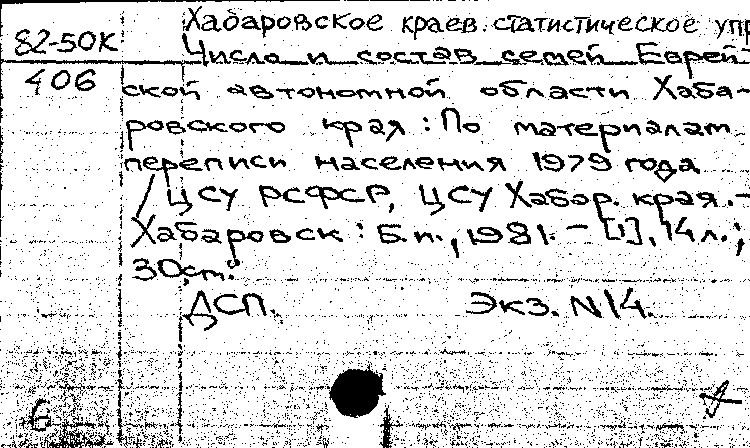 Хабаровское краев. статистическое упр
82-50к Число и состав семей Еврей-
406 ской автономной области Хаба-
ровского края : По материалам
переписи населения 1979 года
/ ЦСУ РСФСР, ЦСУ Хабар. края. -
Хабаровск : Б.и., 1981. - [1], 14 л.;
30 см.
ДСП. Экз. N 14.